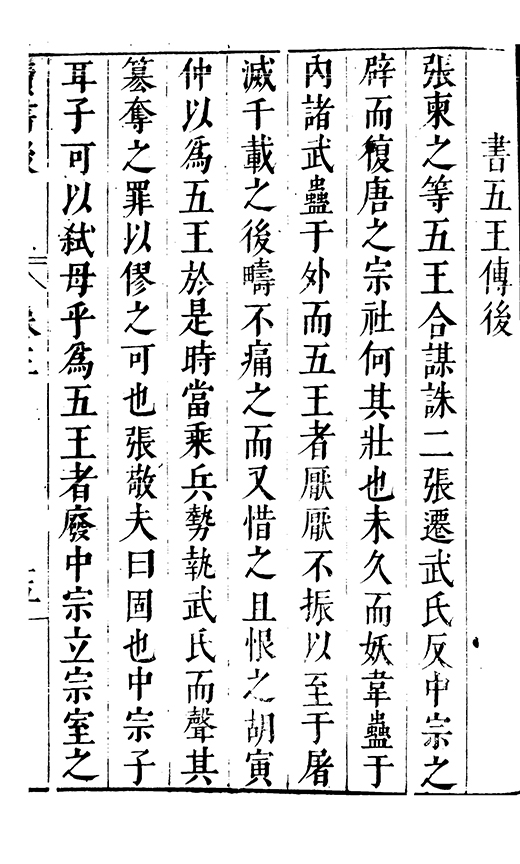 書五王傳後
張柬之等五王合謀誅二張遷武氏反中宗之
辟而復唐之宗社何其壯也未久而妖韋蠱于
內諸武蠱于外而五王者厭厭不振以至于屠
滅千載之後疇不痛之而又惜之且恨之胡寅
仲以為五王於是時當乘兵勢執武氏而聲其
篡奪之罪以僇之可也張敬夫曰固也中宗子
耳子可以弑母乎為五王者廢中宗立宗室之
讀書後